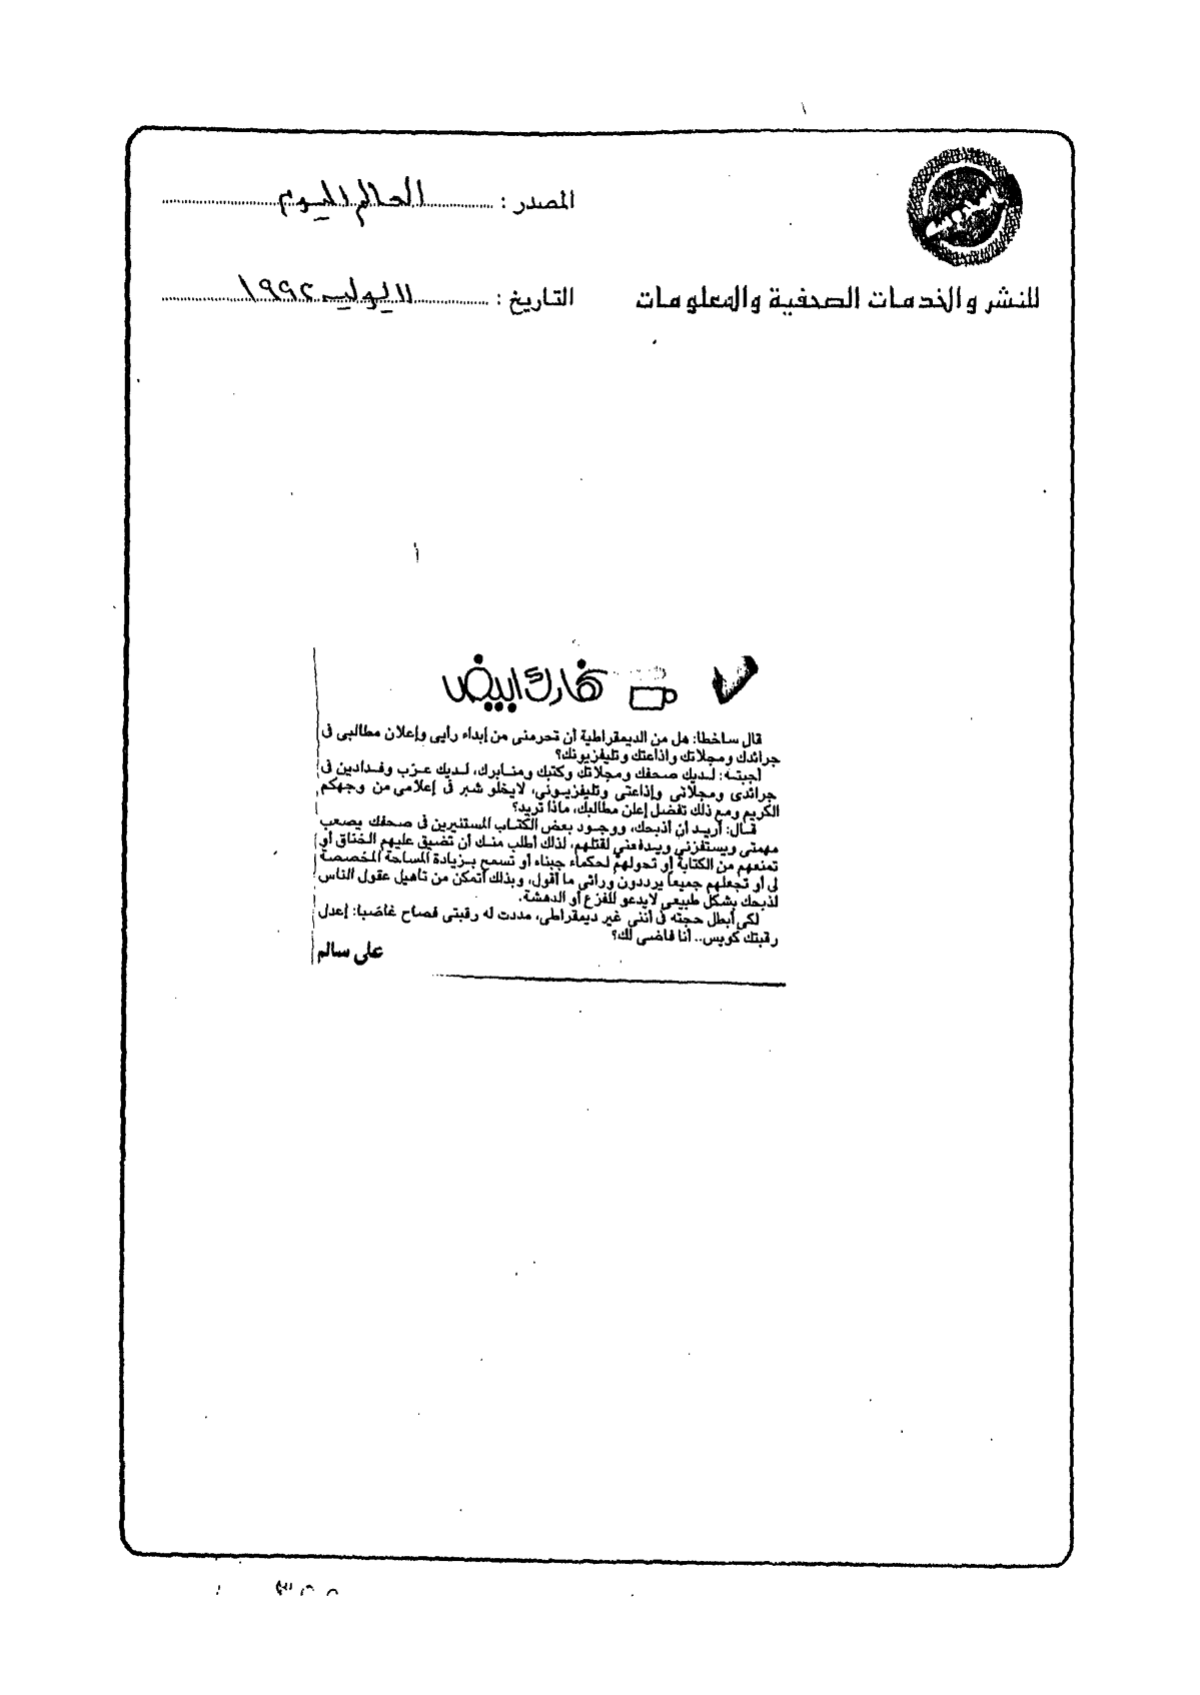 المصدر : العالم اليوم
للنشر والخدمات الصحفية والمعلومات
التاريخ : ١١ يوليه ١٩٩٢
نهارك ابيض
قال ساخطا: هل من الديمقراطية أن تحرمنى من إبداء رأيى وإعلان مطالبى فى
جرائدك ومجلاتك واذاعتك وتليفزيونك؟
أجبته: لديك صحفك ومجلاتك وكتبك ومنابرك، لديك عزب وفدادين فى
جرائدى ومجلاتى وإذاعتى وتليفزيونى، لايخلو شبر فى إعلامى من وجهكم
الكريم ومع ذلك تفضل إعلن مطالبك، ماذا تريد؟
قال: أريد أن أذبحك، ووجود بعض الكتاب المستنيرين فى صحفك يصعب
مهمتى ويستفزنى ويدفعنى لقتلهم، لذلك أطلب منك أن تضيق عليهم الخناق أو
تمنعهم من الكتابة أو تحولهم لحكماء جبناء أو تسمح بزيادة المساحة المخصصة
لى أو تجعلهم جميعا يرددون ورائى ما أقول، وبذلك أتمكن من تأهيل عقول الناس
لذبحك بشكل طبيعى لايدعو للفزع أو الدهشة.
لكى أبطل حجته فى أننى غير ديمقراطى، مددت له رقبتى فصاح غاضبا: إعدل
رقبتك كويس.. أنا فاضى لك؟
على سالم